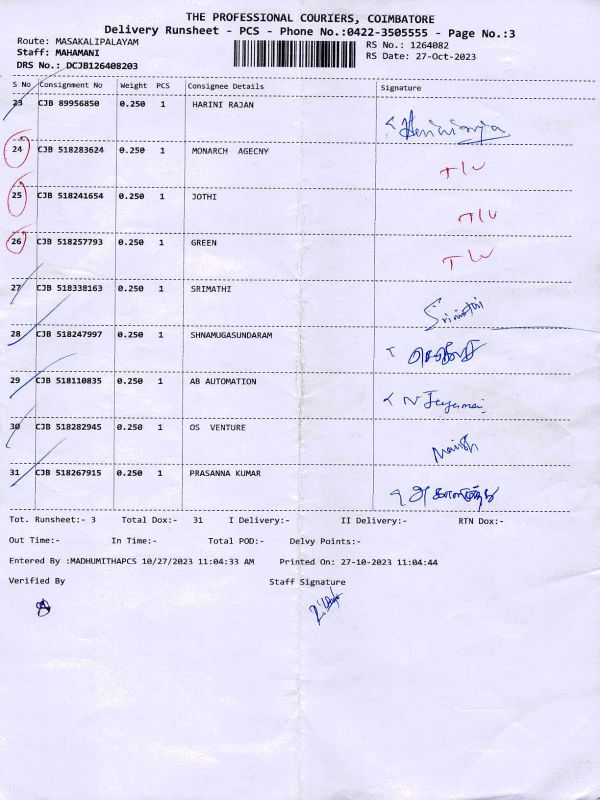 THE PROFESSIONAL COURIERS, COIMBATORE
Delivery Runsheet - PCS - Phone No.:0422-3505555 - Page No.:3
Route: MASAKALIPALAYAM RS No.: 1264082
Staff: MAHAMANI RS Date: 27-Oct-2023
DRS No.: DCJB126408203
S No Consignment No Weight PCS Consignee Details Signature
23 CJB 89956850 0.250 1 HARINI RAJAN
24 CJB 518283624 0.250 1 MONARCH AGECNY
25 CJB 518241654 0.250 1 JOTHI
26 CJB 518257793 0.250 1 GREEN
27 CJB 518338163 0.250 1 SRIMATHI
28 CJB 518247997 0.250 1 SHNAMUGASUNDARAM
29 CJB 518110835 0.250 1 AB AUTOMATION
30 CJB 518282945 0.250 1 OS VENTURE
31 CJB 518267915 0.250 1 PRASANNA KUMAR
Tot. Runsheet:- 3 Total Dox:- 31 I Delivery:- II Delivery:- RTN Dox:-
Out Time:- In Time:- Total POD:- Delvy Points:-
Entered By :MADHUMITHAPCS 10/27/2023 11:04:33 AM Printed On: 27-10-2023 11:04:44
Verified By Staff Signature